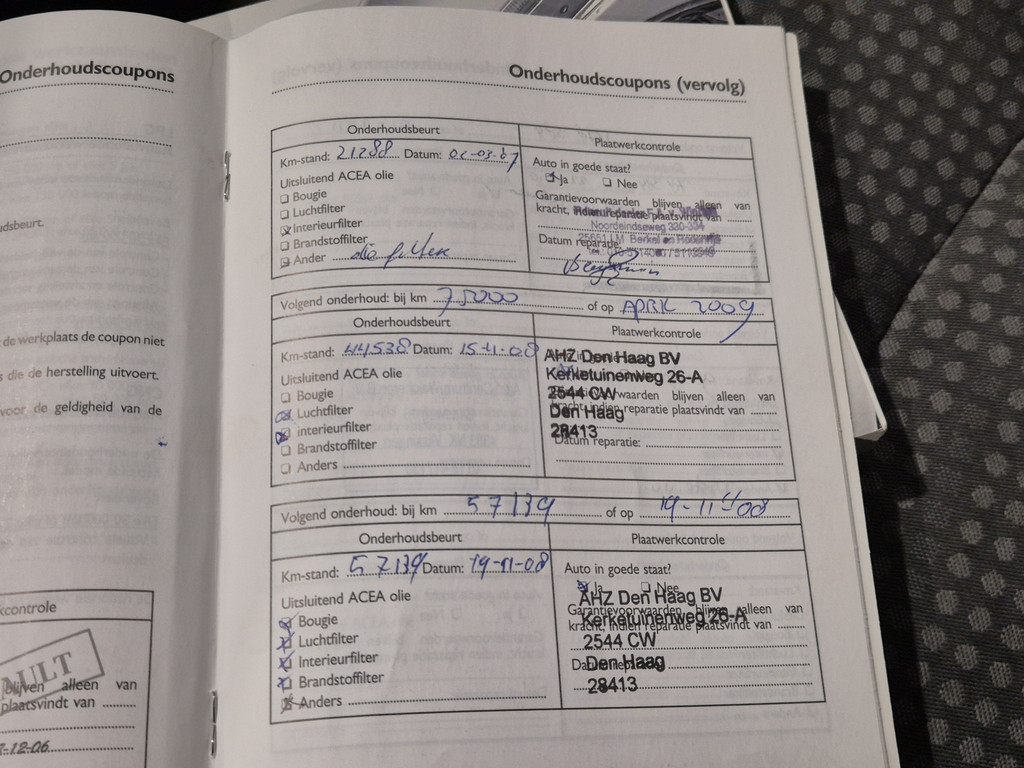 Onderhoudscoupons
udsbeurt.
de werkplaats de coupon niet
s die de herstelling uitvoert.
voor de geldigheid van de
kcontrole
AULT
blijven alleen van
plaatsvindt van
-12-06
Onderhoudscoupons (vervolg)
Onderhoudsbeurt
Plaatwerkcontrole
Km-stand: 21288 Datum:
Auto in goede staat?
Ja Nee
Uitsluitend ACEA olie
Bougie
Luchtfilter
Interieurfilter
Brandstoffilter
Ander olie filter
Garantievoorwaarden blijven alleen van
kracht, indien reparatie plaatsvindt van
Noordeindseweg 330-334
Berkel en Rodenrijs
Datum reparatie:
Volgend onderhoud: bij km 75000 of op APRIL 2009
Onderhoudsbeurt
Plaatwerkcontrole
Km-stand: 44538 Datum: 15-4-08
Uitsluitend ACEA olie
Bougie
Luchtfilter
interieurfilter
Brandstoffilter
Anders
AHZ Den Haag BV
Kerketuinenweg 26-A
2544 CW
Den Haag
28413
waarden blijven alleen van
kracht, indien reparatie plaatsvindt van
Datum reparatie:
Volgend onderhoud: bij km 57139 of op 19-11-08
Onderhoudsbeurt
Plaatwerkcontrole
Km-stand: 57139 Datum: 19-11-08
Auto in goede staat?
Ja Nee
Uitsluitend ACEA olie
Bougie
Luchtfilter
Interieurfilter
Brandstoffilter
Anders
AHZ Den Haag BV
Garantievoorwaarden blijven alleen van
Kerketuinenweg 26-A
kracht, indien reparatie plaatsvindt van
2544 CW
Datum reparatie:
Den Haag
28413